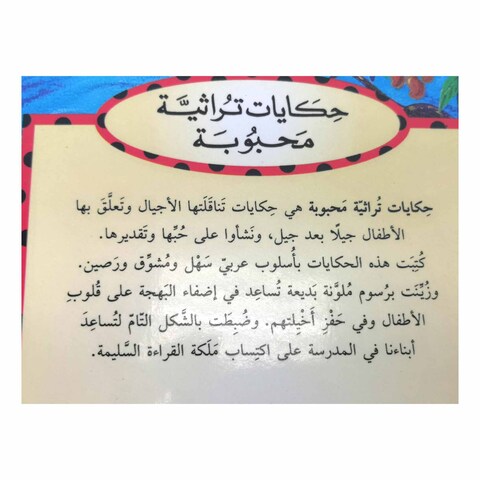 حِكَايات تُراثيَّة
مَحبُوبَة
حِكايات تُراثيّة مَحبوبة هي حِكايات تَناقَلَتها الأجيال وتَعلَّقَ بها
الأطفال جيلًا بعد جيل، ونَشأوا على حُبِّها وتَقديرها.
كُتِبَت هذه الحكايات بأُسلوب عربيّ سَهْل ومُشوِّق ورَصين.
وزُيِّنَت برُسوم مُلوَّنة بَديعة تُساعِد في إضفاء البَهجة على قُلوبِ
الأطفال وفي حَفْزِ أَخْيِلتهم. وضُبِطَت بالشَّكل التّامّ لتُساعِدَ
أبناءنا في المدرسة على اكتِساب مَلَكة القراءة السَّليمة.